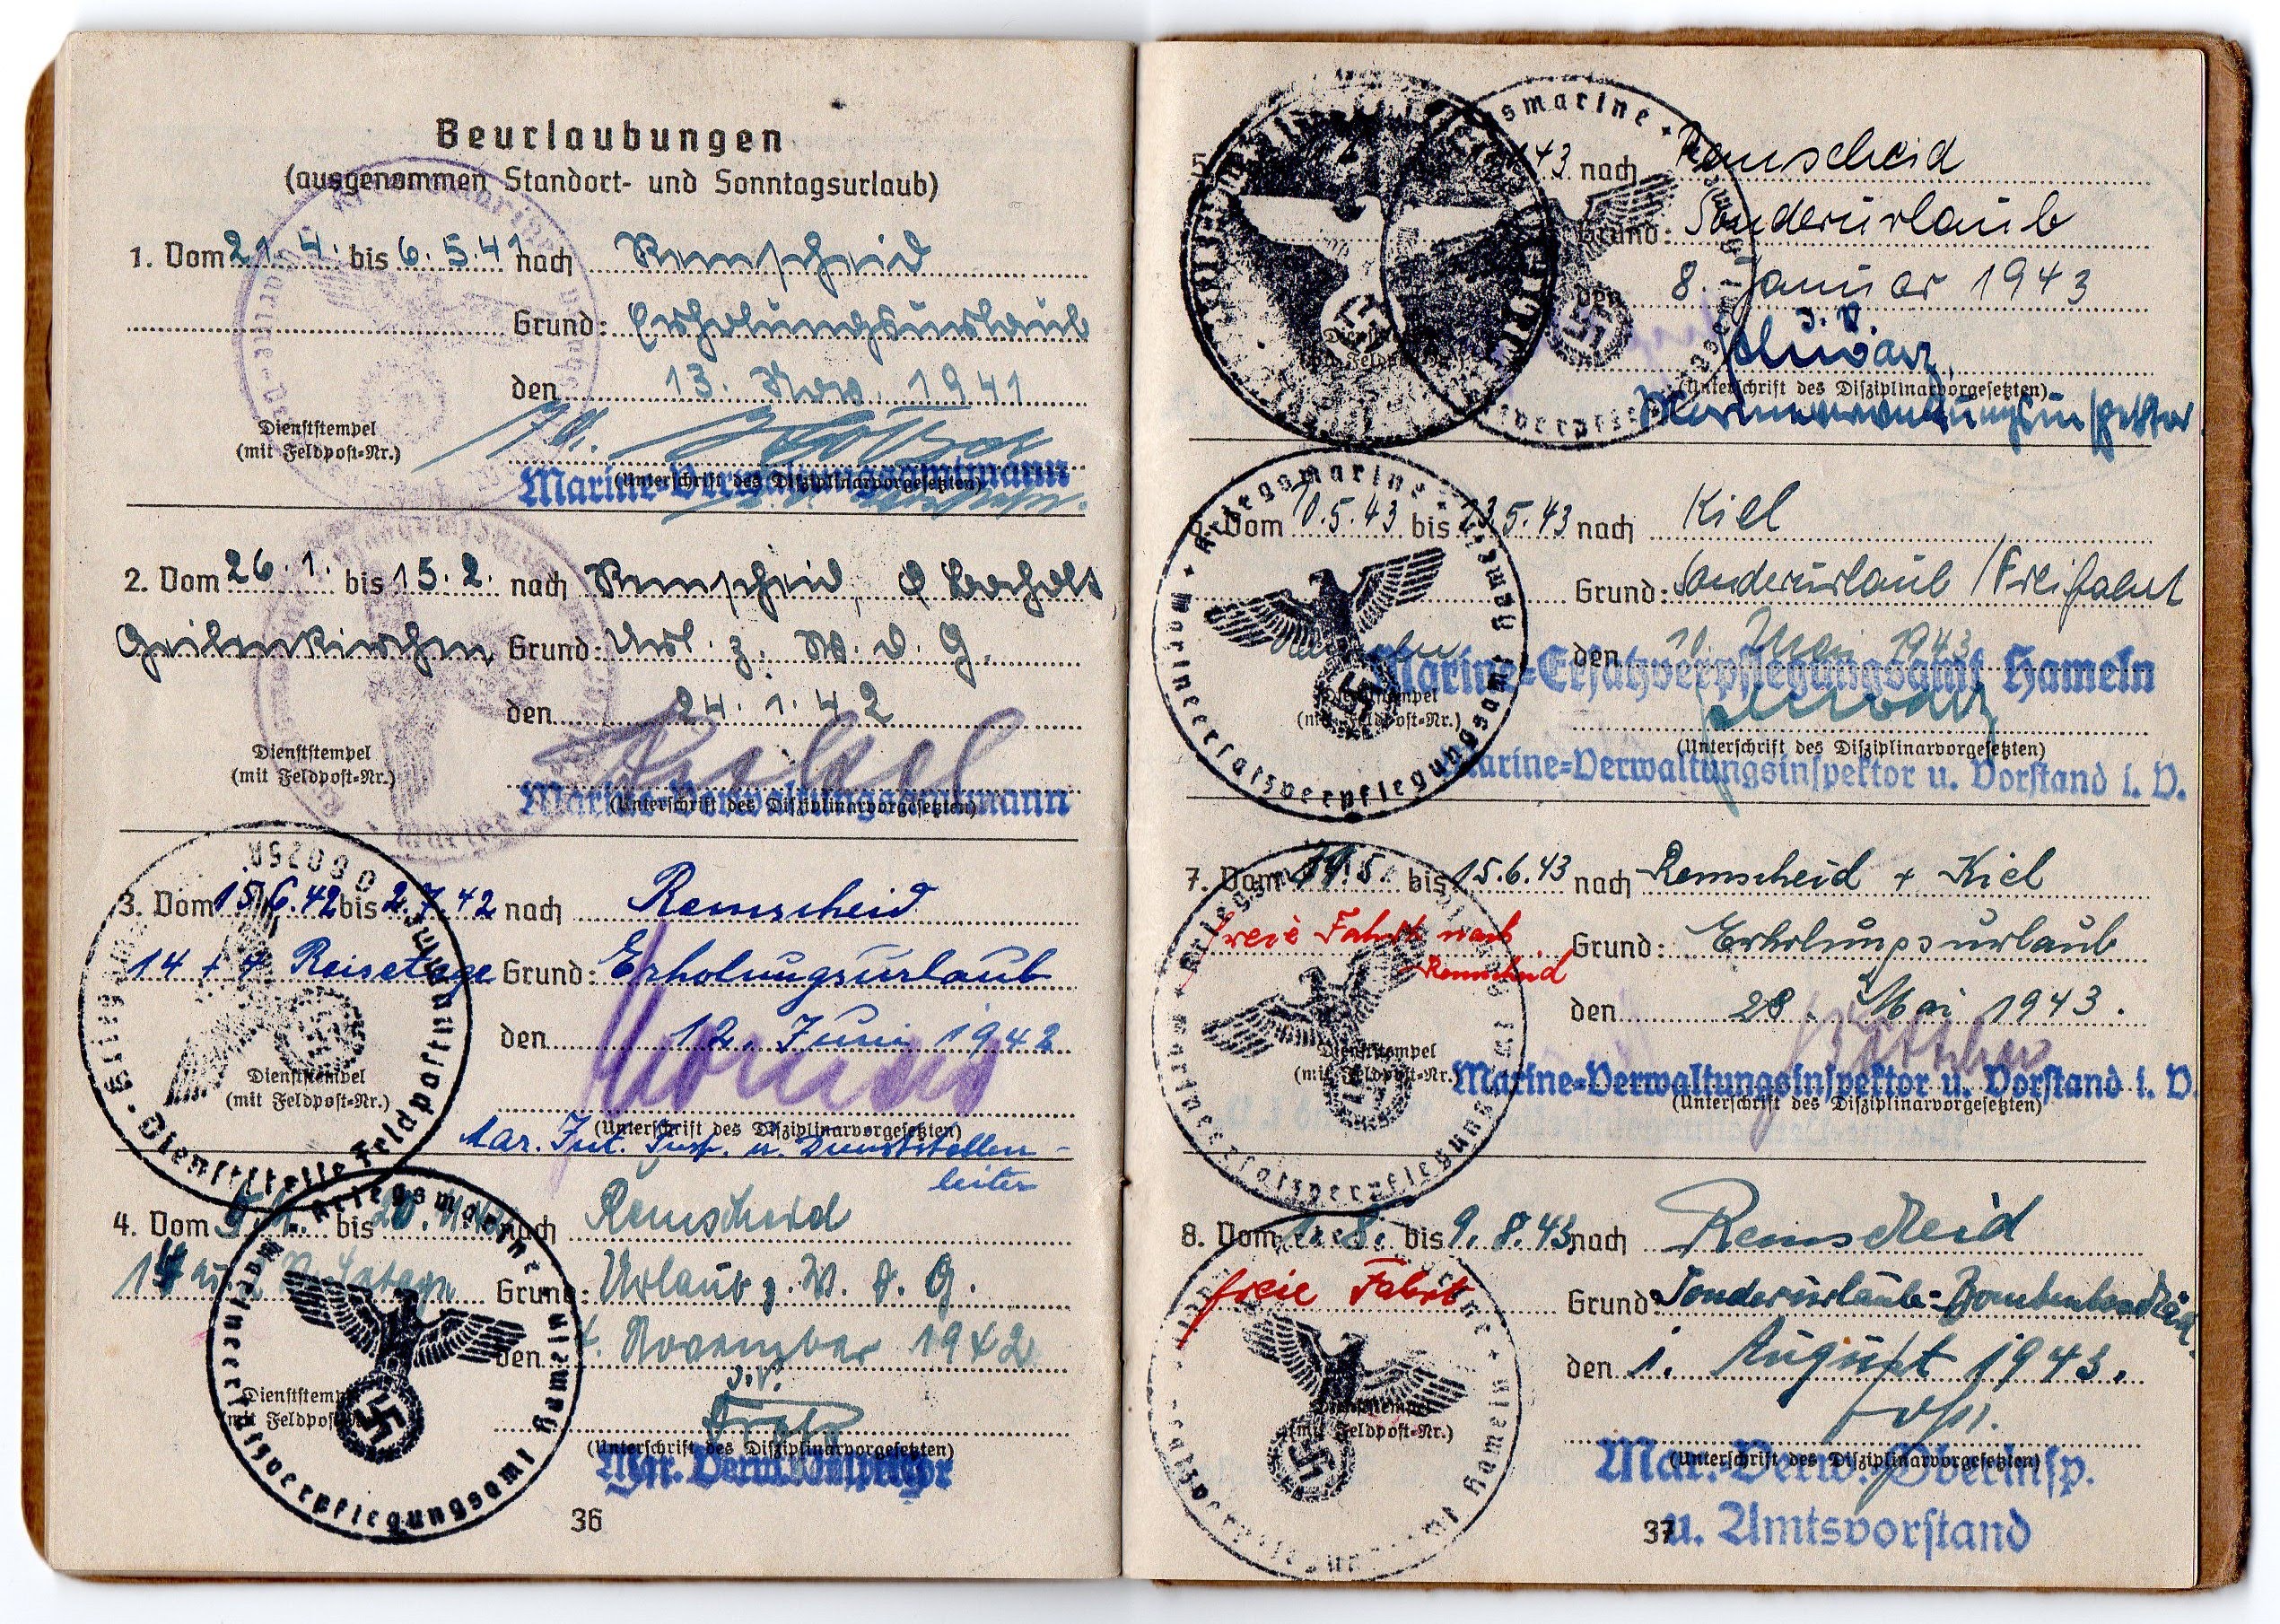 Beurlaubungen
(ausgenommen Standort- und Sonntagsurlaub)
1. Vom 21. 4. bis 6. 5. 41 nach Remscheid
Grund: Erholungsurlaub
den 13. Nov. 1941
Dienststempel
(mit Feldpost-Nr.)
Marine-Verwaltungsamtmann
(Unterschrift des Disziplinarvorgesetzten)
2. Vom 26. 1. bis 15. 2. nach Remscheid,
Geilenkirchen Grund: Url. z. W. d. G.
den 24. 1. 42
Dienststempel
(mit Feldpost-Nr.)
Marine-Verwaltungsamtmann
(Unterschrift des Disziplinarvorgesetzten)
3. Vom 15.6.42 bis 2.7.42 nach Remscheid
14 + 4 Reisetage Grund: Erholungsurlaub
den 12. Juni 1942
Dienststempel
(mit Feldpost-Nr.)
(Unterschrift des Disziplinarvorgesetzten)
Mar. Int. Insp. u. Dienststellen-
leiter
Dienststelle Feldpostnummer
4. Vom bis nach Remscheid
Grund: Urlaub z. W. d. G.
den 4. November 1942
J.V.
Dienststempel
(mit Feldpost-Nr.)
(Unterschrift des Disziplinarvorgesetzten)
Mar. Verw. Inspektor
Kriegsmarine
Marineersatzverpflegungsamt Hameln
36
5. 43 nach Remscheid
Grund: Sonderurlaub
den 8. Januar 1943
J. V.
Schwarz
(Unterschrift des Disziplinarvorgesetzten)
Marineverwaltungsinspektor
6. Vom 10.5.43 bis 23.5.43 nach Kiel
Grund: Sonderurlaub / Freifahrt
den 10. Mai 1943
Marine-Ersatzverpflegungsamt Hameln
Schwarz
Dienststempel
(mit Feldpost-Nr.)
(Unterschrift des Disziplinarvorgesetzten)
Marine-Verwaltungsinspektor u. Vorstand i. V.
Kriegsmarine
Marineersatzverpflegungsamt Hameln
7. Vom bis 15.6.43 nach Remscheid + Kiel
freie Fahrt nach
Remscheid
Grund: Erholungsurlaub
den 28. Mai 1943.
Dienststempel
(mit Feldpost-Nr.)
Böttcher
Marine-Verwaltungsinspektor u. Vorstand i. V.
(Unterschrift des Disziplinarvorgesetzten)
8. Vom 1. 8. bis 9. 8. 43 nach Remscheid
freie Fahrt
Grund: Sonderurlaub-
den 1. August 1943.
Dienststempel
(mit Feldpost-Nr.)
(Unterschrift des Disziplinarvorgesetzten)
Mar.-Verw.-Oberinsp.
u. Amtsvorstand
37